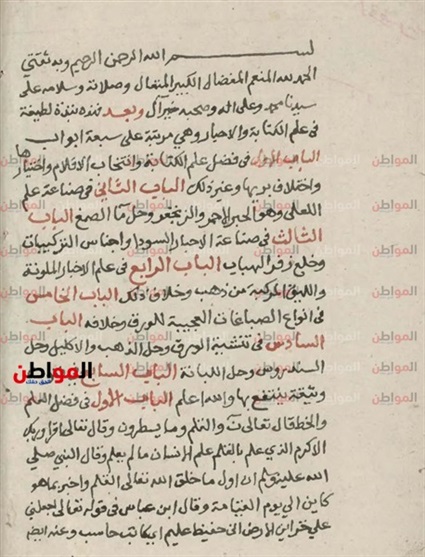 بسم الله الرحمن الرحيم وبه ثقتي
الحمد لله المنعم المفضال الكبير المتعال وصلاته وسلامه على
سيدنا محمد وعلى اله وصحبه خير آل وبعد فهذه نبذة لطيفة
في علم الكتابة والاحبار وهي مرتبة على سبعة ابواب
الباب الاول في فضل علم الكتابة وانتخاب الاقلام واختيارها
واختلاف بريها وغير ذلك الباب الثاني في صناعة علم
وهو الحبر الاحمر والزنجفر وحل ما الصمغ الباب
الثالث في صناعة الاحبار السود واجناس التركيبات
وخلع زفر الهباب الباب الرابع في علم الاحبار الملونة
والليق المركبة من ذهب وخلاف ذلك الباب الخامس
في انواع الصباغات العجيبة للورق وخلافه الباب
السادس في الورق وحل الذهب والاكليل وحل
السندروس وحل اللبانة الباب السابع
ينتفع بها والله اعلم الباب الاول في فضل القلم
والخط قال تعالى ن والقلم وما يسطرون وقال تعالى اقرا وربك
الاكرم الذي علم بالقلم علم الانسان ما لم يعلم وقال النبي صلى
الله عليه وسلم ان اول ما خلق الله تعالى القلم واخبر بما هو
كاين الى يوم القيامة وقال ابن عباس في قوله تعالى اجعلني
على خزاين الارض اني حفيظ عليم اي كاتب حاسب وعنه ايضا
المواطن